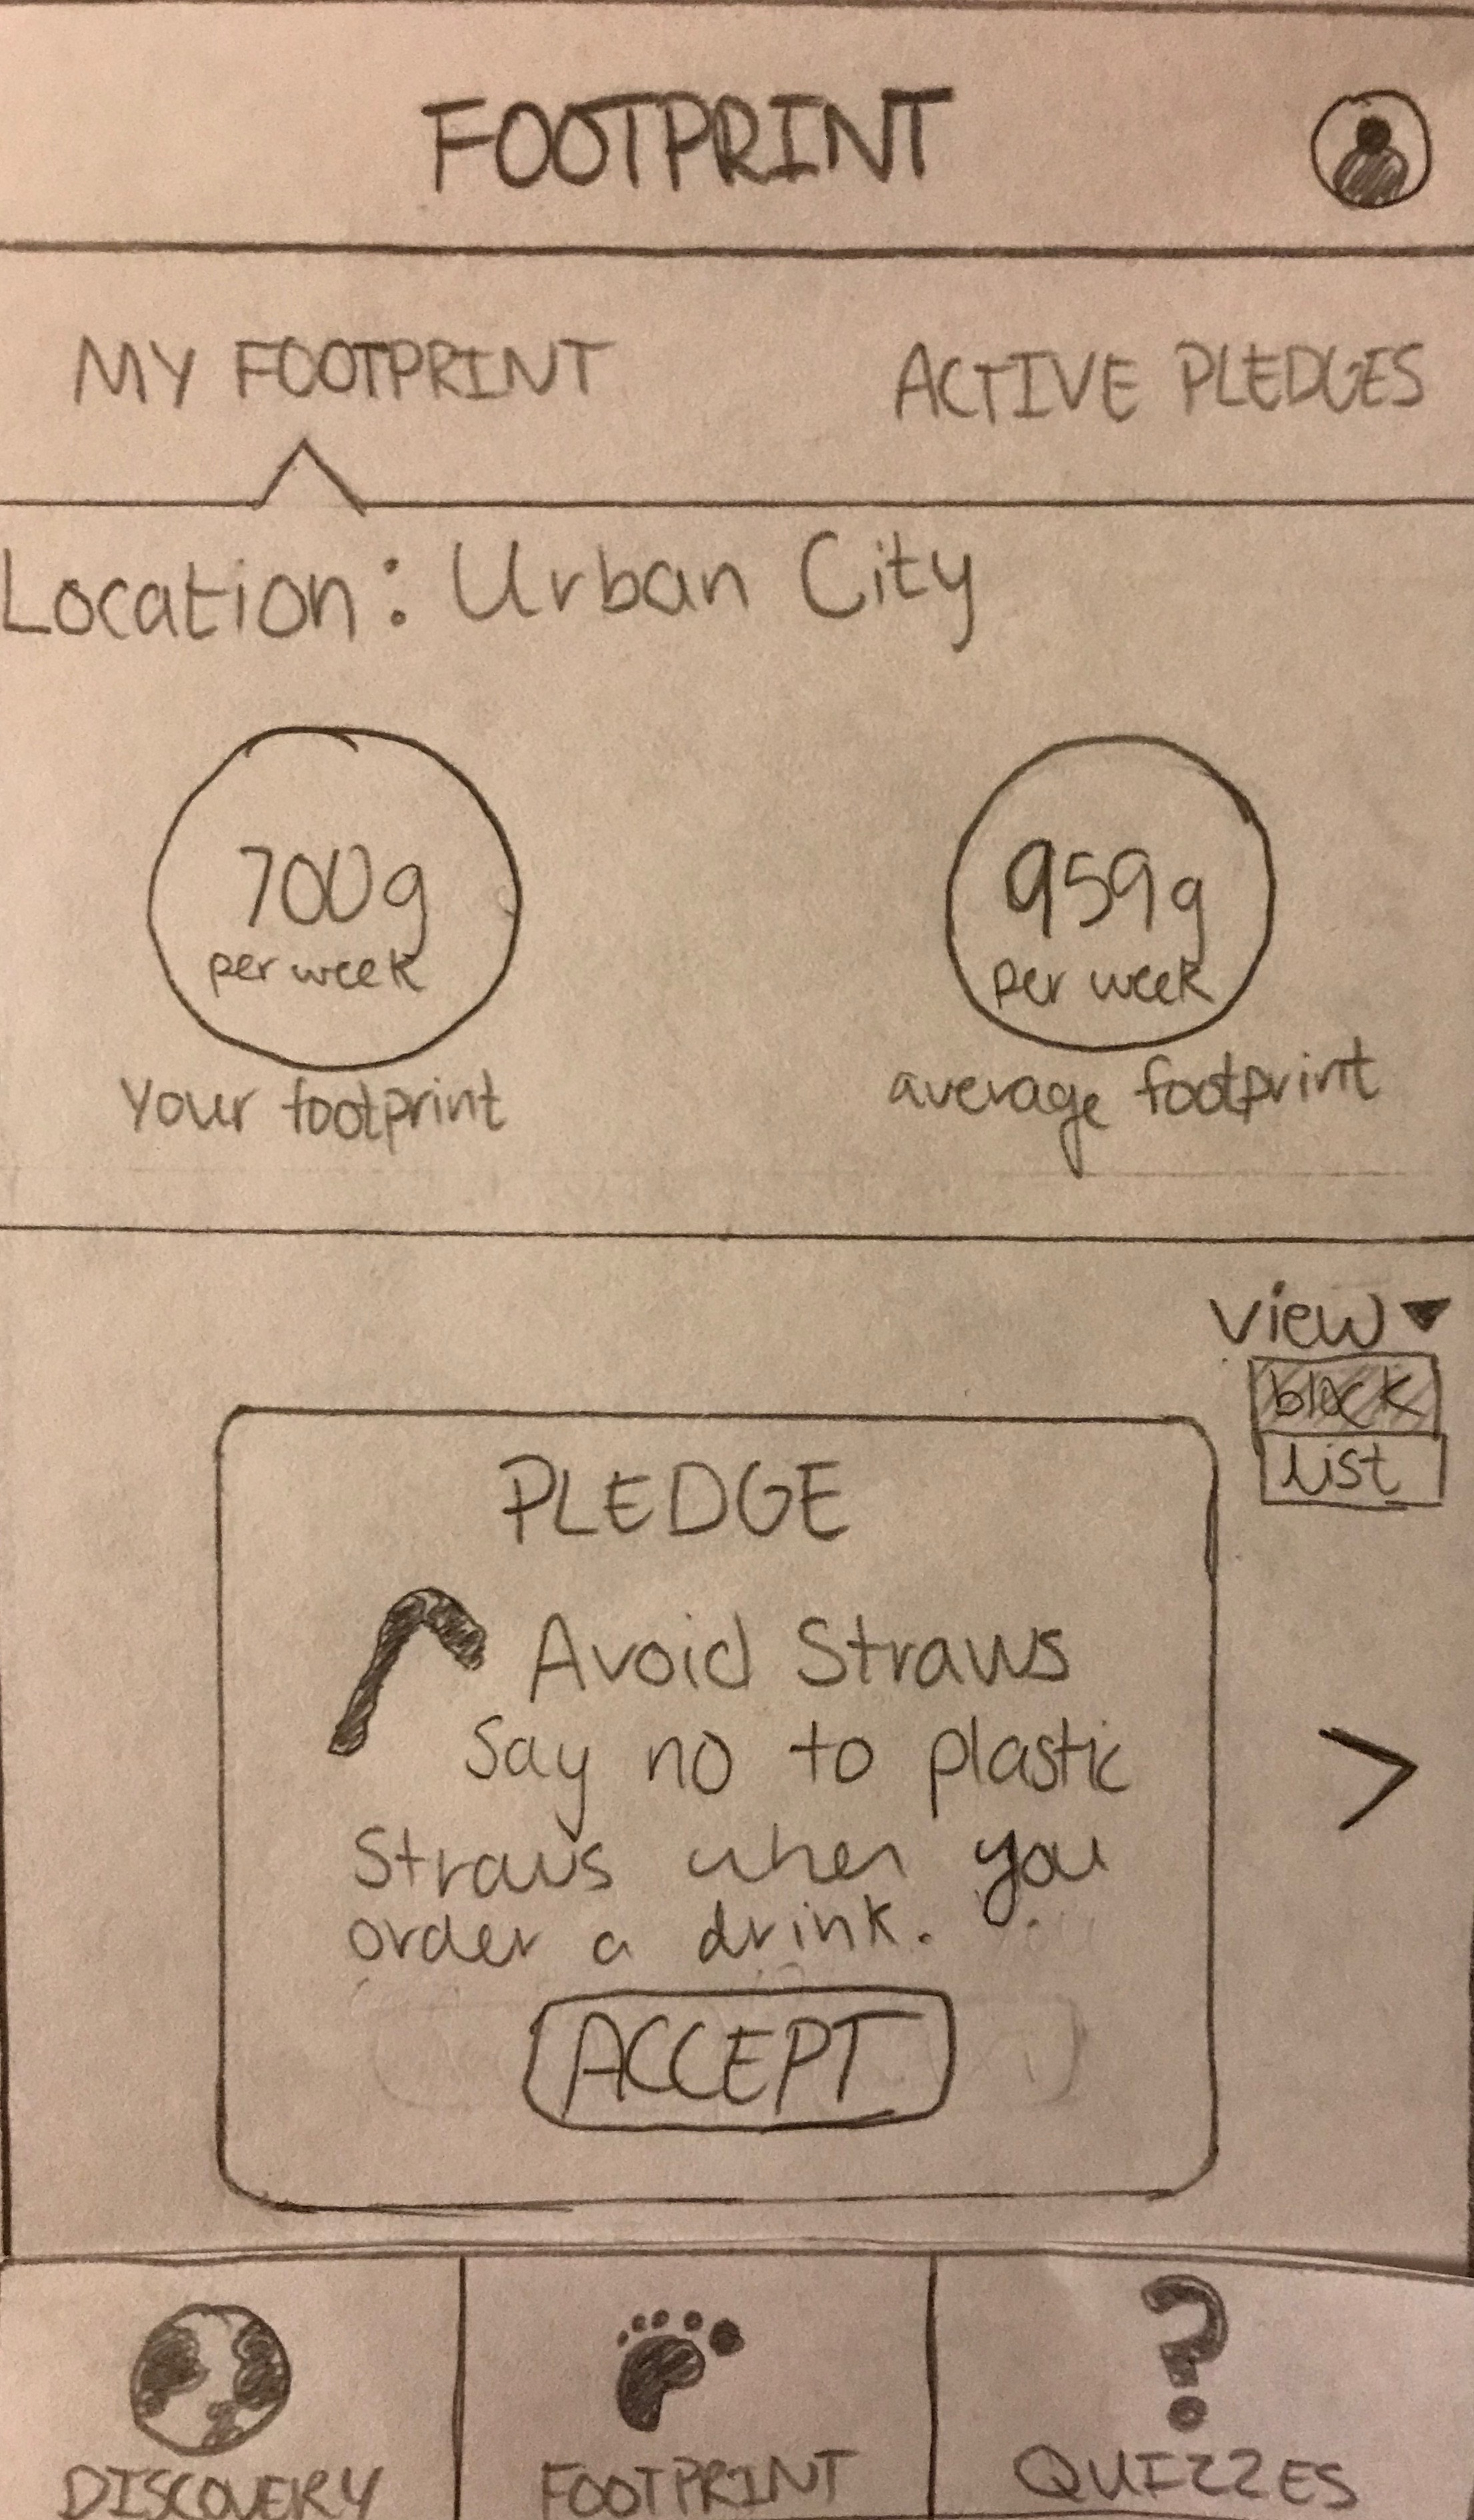 FOOTPRINT
MY FOOTPRINT
ACTIVE PLEDGES
Location: Urban City
700g
per week
Your footprint
959g
per week
average footprint
view
block
list
PLEDGE
Avoid Straws
Say no to plastic
Straws when you
order a drink.
ACCEPT
DISCOVERY
FOOTPRINT
QUIZZES